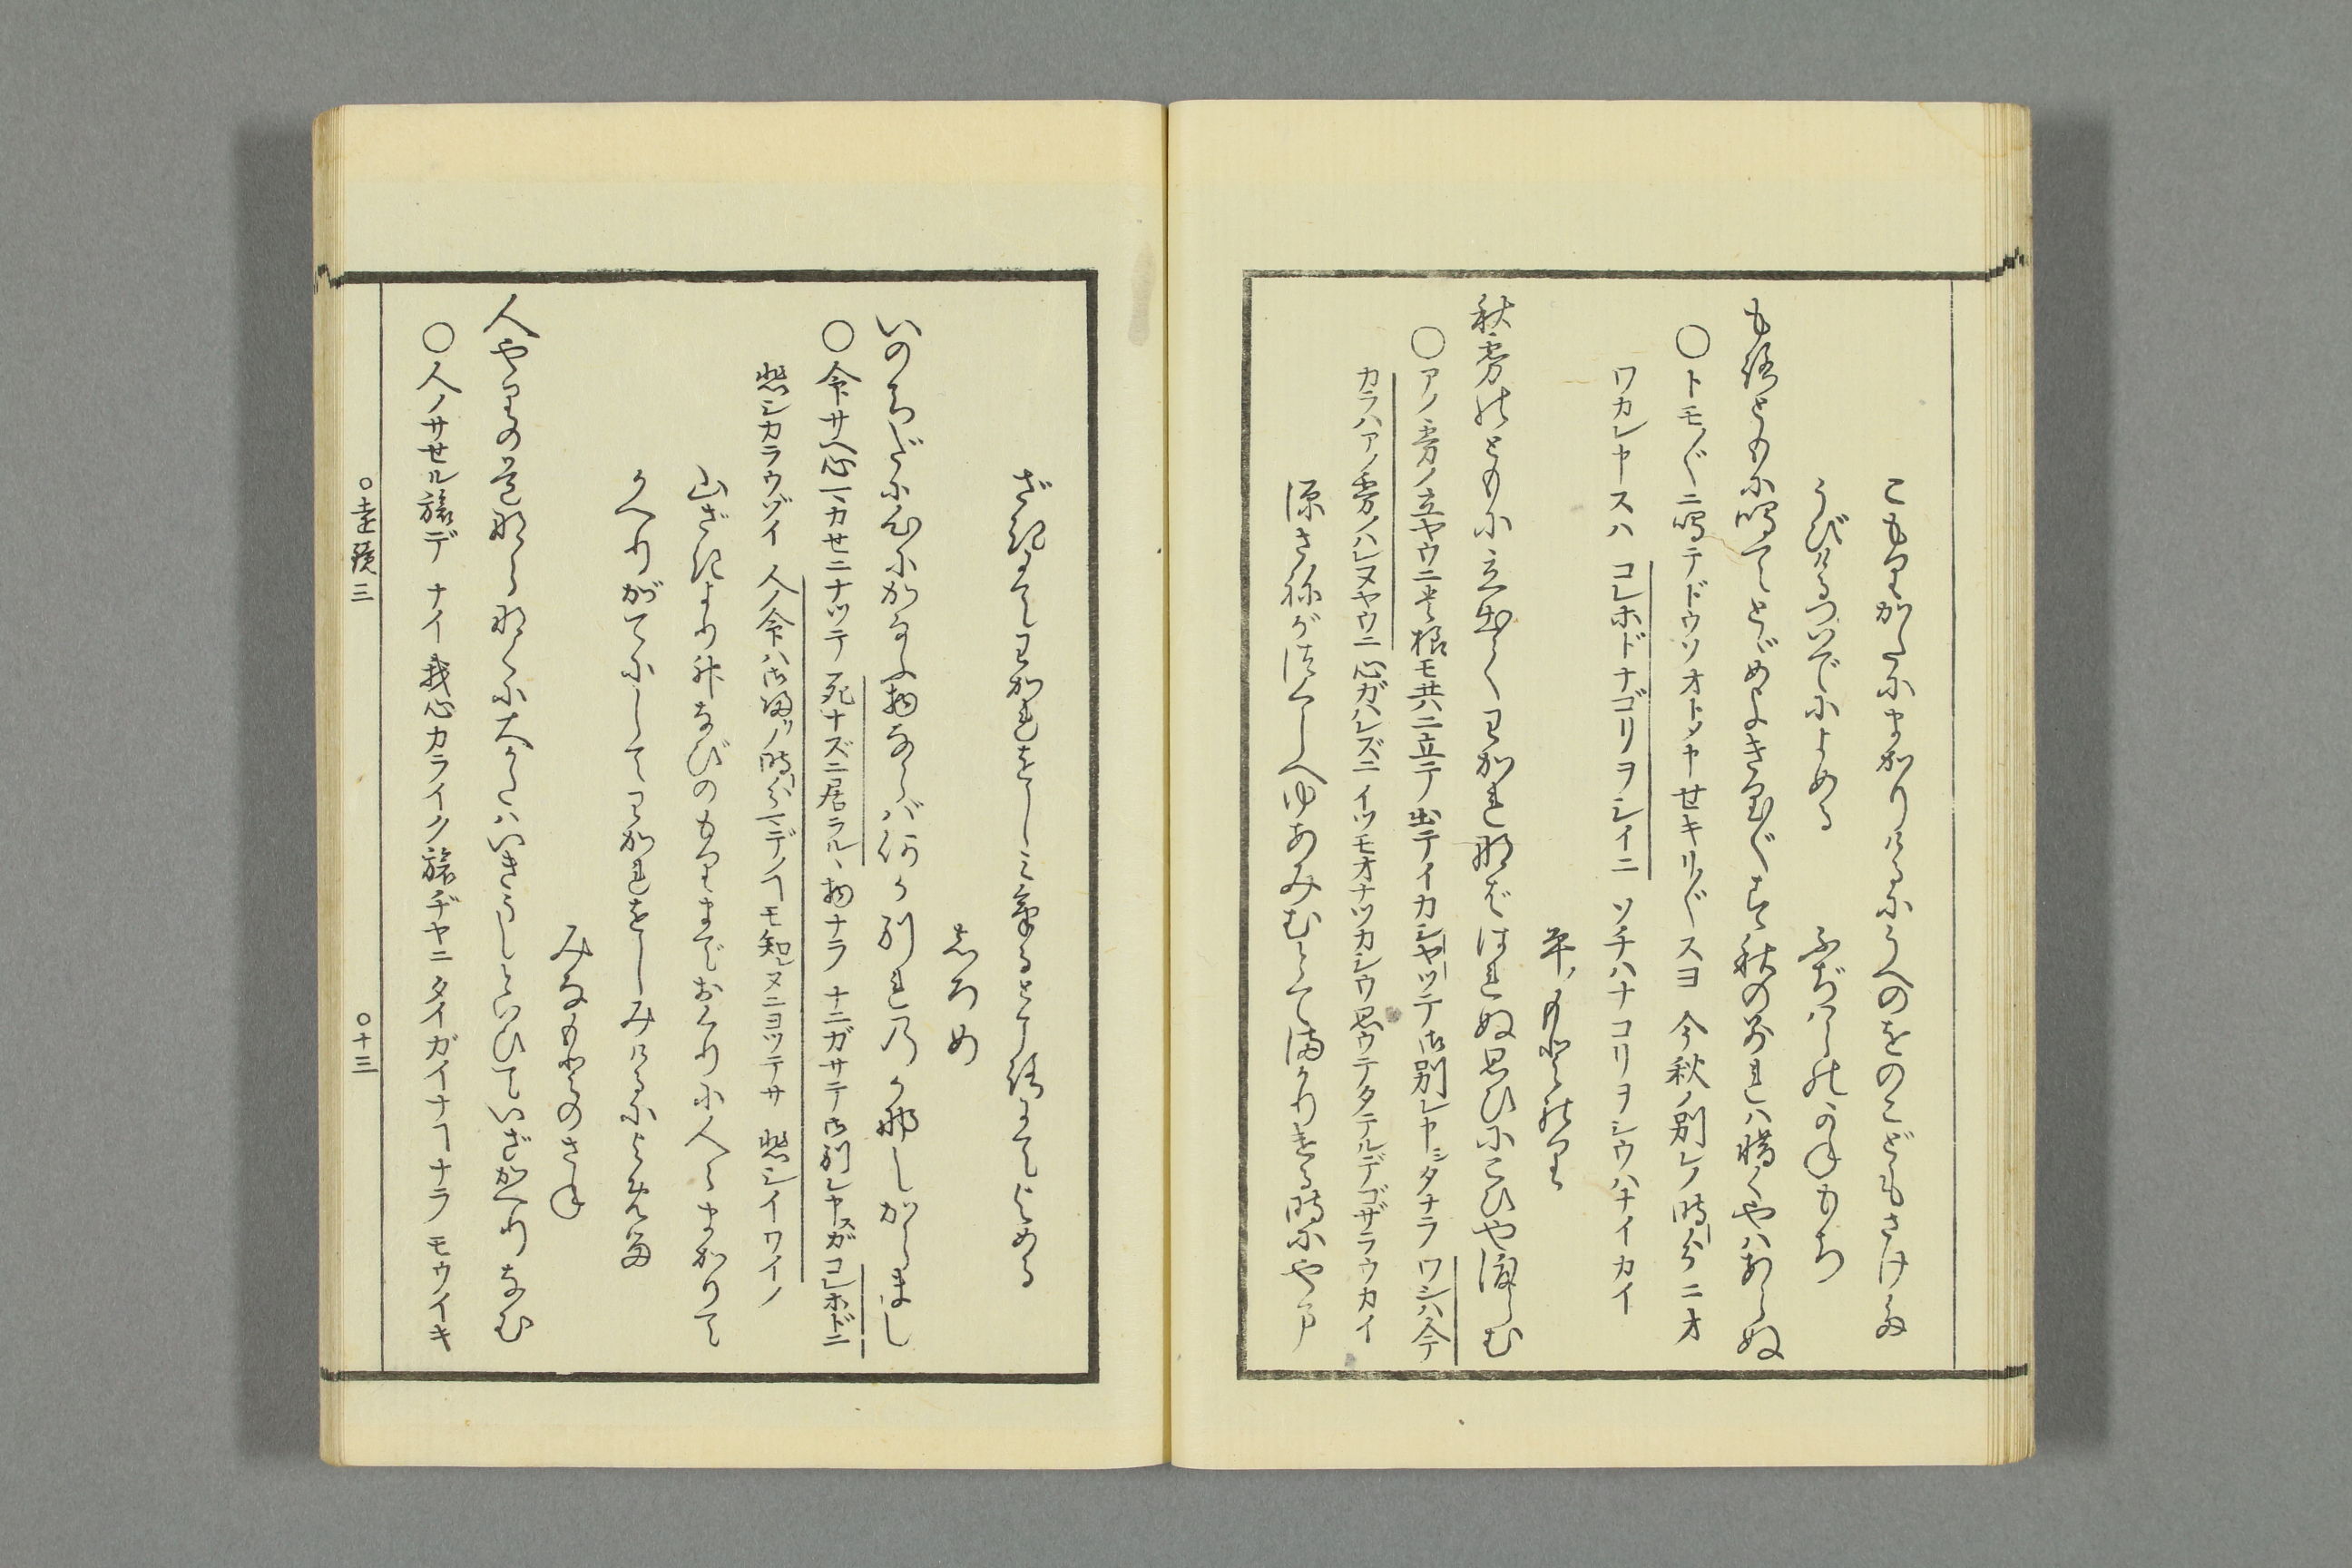 こもりがたにまかりけるにうへのをのこどもさけたう
うびけるついでによめる　ふぢはらのかねもち
もろともに鳴てとゞめよきり〴〵す秋の別れハ惜くやハあらぬ
○トモ〴〵ニ鳴テドウゾオトメヤセキリ〴〵スヨ 今秋ノ別レノ時分ニオ
ワカレヤスハ コレホドナゴリヲシイニ ソチハナコリヲシウハナイカイ
平ノもとのり
秋霧のともに立出てわかれなばはれぬ思ひにこひや渡らむ
○アノ霧ノ立ヤウニ其様モ共ニ立テ出テイカシヤツテ御別レヤシタナラ ワシハ今
カラハアノ霧ノハレヌヤウニ心ガハレズニ イツモオナツカシウ思ウテタテルデゴザラウカイ
源さねがつくしへゆあみむとてまかりける時にやま
ざきにてわかれをしみける所にてよめる
しろめ
いのちだに心にかなふ物ならバ何か別れのかなしからまし
○命サヘ心マカセニナツテ 死ナズニ居ラルヽ物ナラ ナニガサテ御別レヤスガコレホドニ
悲シカラウゾイ 人ノ命ハ御帰リノ時分マデノヿモ知レヌニヨツテサ 悲シイワイノ
山ざきより神なびのもりまでおくりに人〻まかりて
かへりがてにしてわかれをしみけるによめる
みなもとのさね
人やりの道ならなくに大かたハいきうしといひていざかへりなむ
○人ノサセル旅デ ナイ 我心カライク旅ヂヤニ タイガイナヿナラ モウイキ
○遠鏡三　○十三